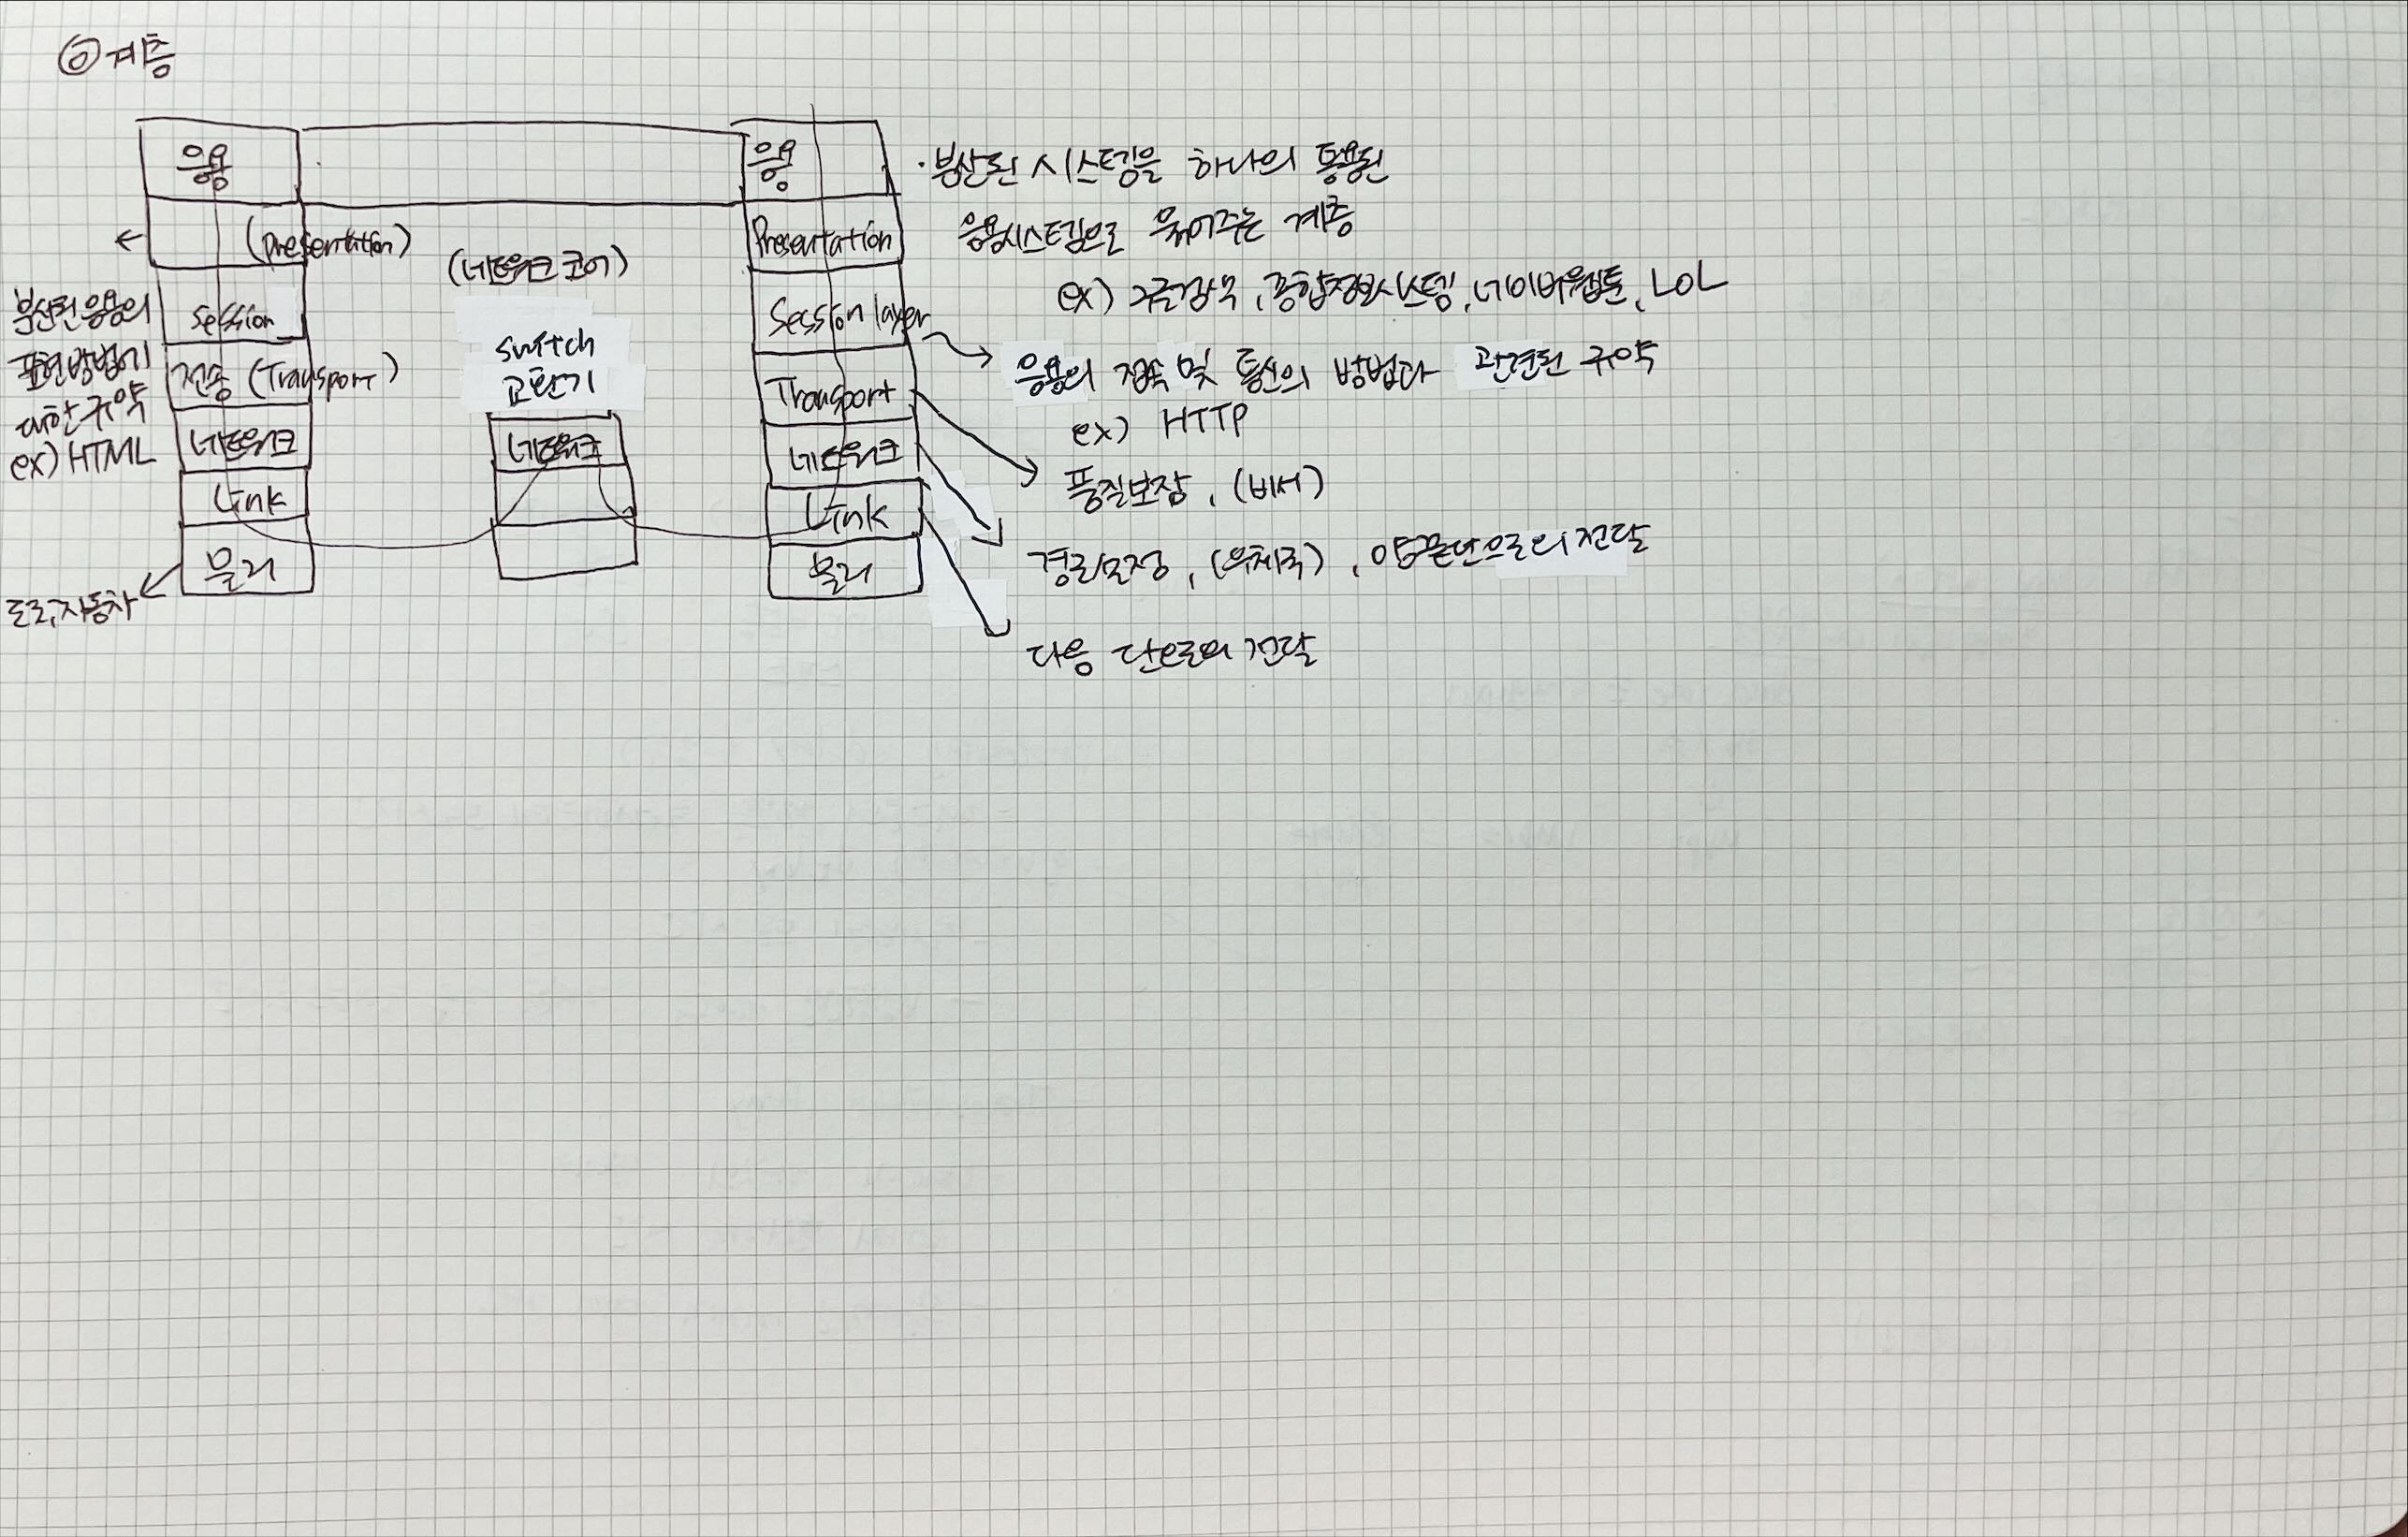 ⑥ 계층
응용
(presentation)
session
전송 (Transport)
네트워크
Link
물리
분산된 응용의
표현방법에
대한 규약
ex) HTML
도로, 자동차
(네트워크 코어)
switch
교환기
네트워크
응용
Presentation
Session layer
Transport
네트워크
Link
물리
· 분산된 시스템을 하나의 통용된
응용시스템으로 묶어주는 계층
ex) 구글검색, 종합정보시스템, 네이버웹툰, LOL
응용의 접속 및 통신의 방법과 관련된 규약
ex) HTTP
품질보장, (비서)
(우체국), 양끝단으로의 전달
다음 단으로의 전달